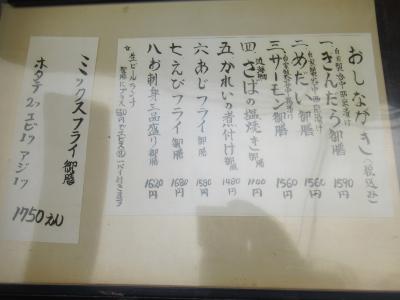 おしながき(税込み)
一 きんたら御膳 1590円
二 めだい御膳 1560円
三 サーモン御膳 1560円
四 さばの塩焼き御膳 1100円
五 かれいの煮付け御膳 1480円
六 あじフライ御膳 1580円
七 えびフライ御膳 1680円
八 お刺身三品盛り御膳 1620円
ミックスフライ御膳
ホタテ2ッ エビ1ッ アジ1ッ
1750えん